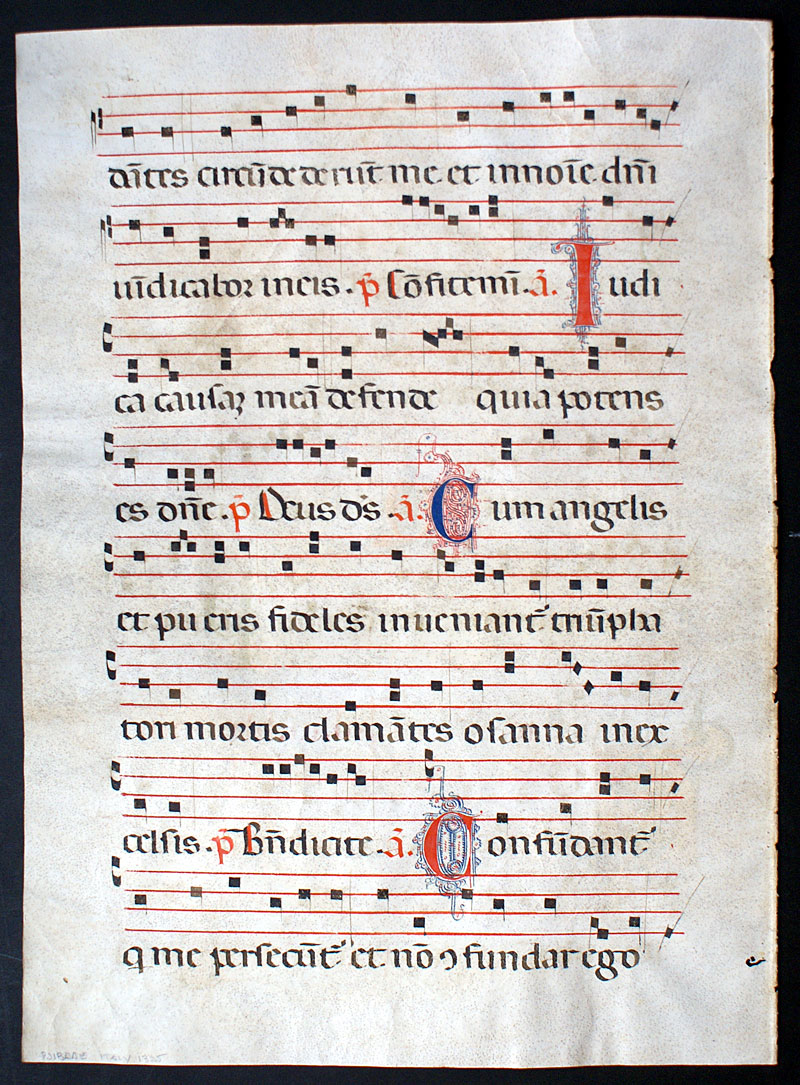 dãtes circũdederũt me. et in noĩe dñi
uĩdicabor in eis. p̃ Cõfitemĩ. ã. Iudi
ca causaꝝ meã defende quia potens
es dñe. p̃ Deus ds̃ ã. Cum angelis
et pueris fideles inueniant᷑ triũpha
tori mortis clamãtes osanna in ex
celsis. p̃ Bñdicite. ã. Confũdant᷑
q me persecũt᷑ et nõ ꝯfundar ego